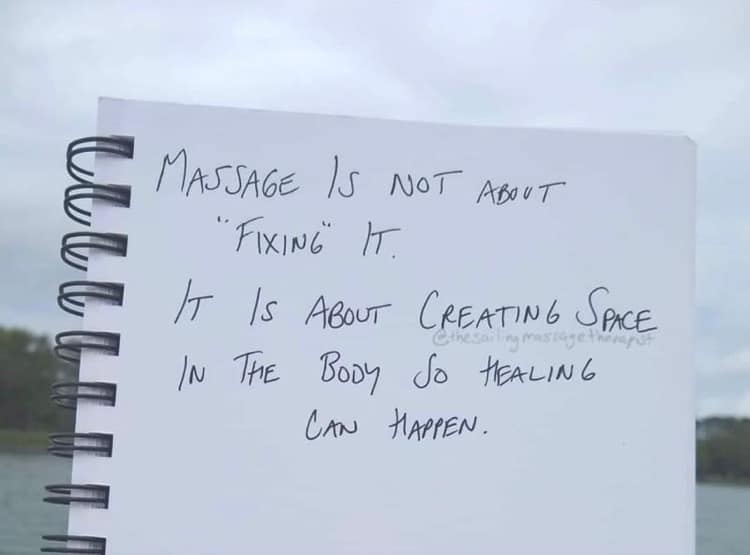 MASSAGE IS NOT ABOUT
"FIXING" IT.
IT IS ABOUT CREATING SPACE
@thesailingmassagetherapist
IN THE BODY SO HEALING
CAN HAPPEN.